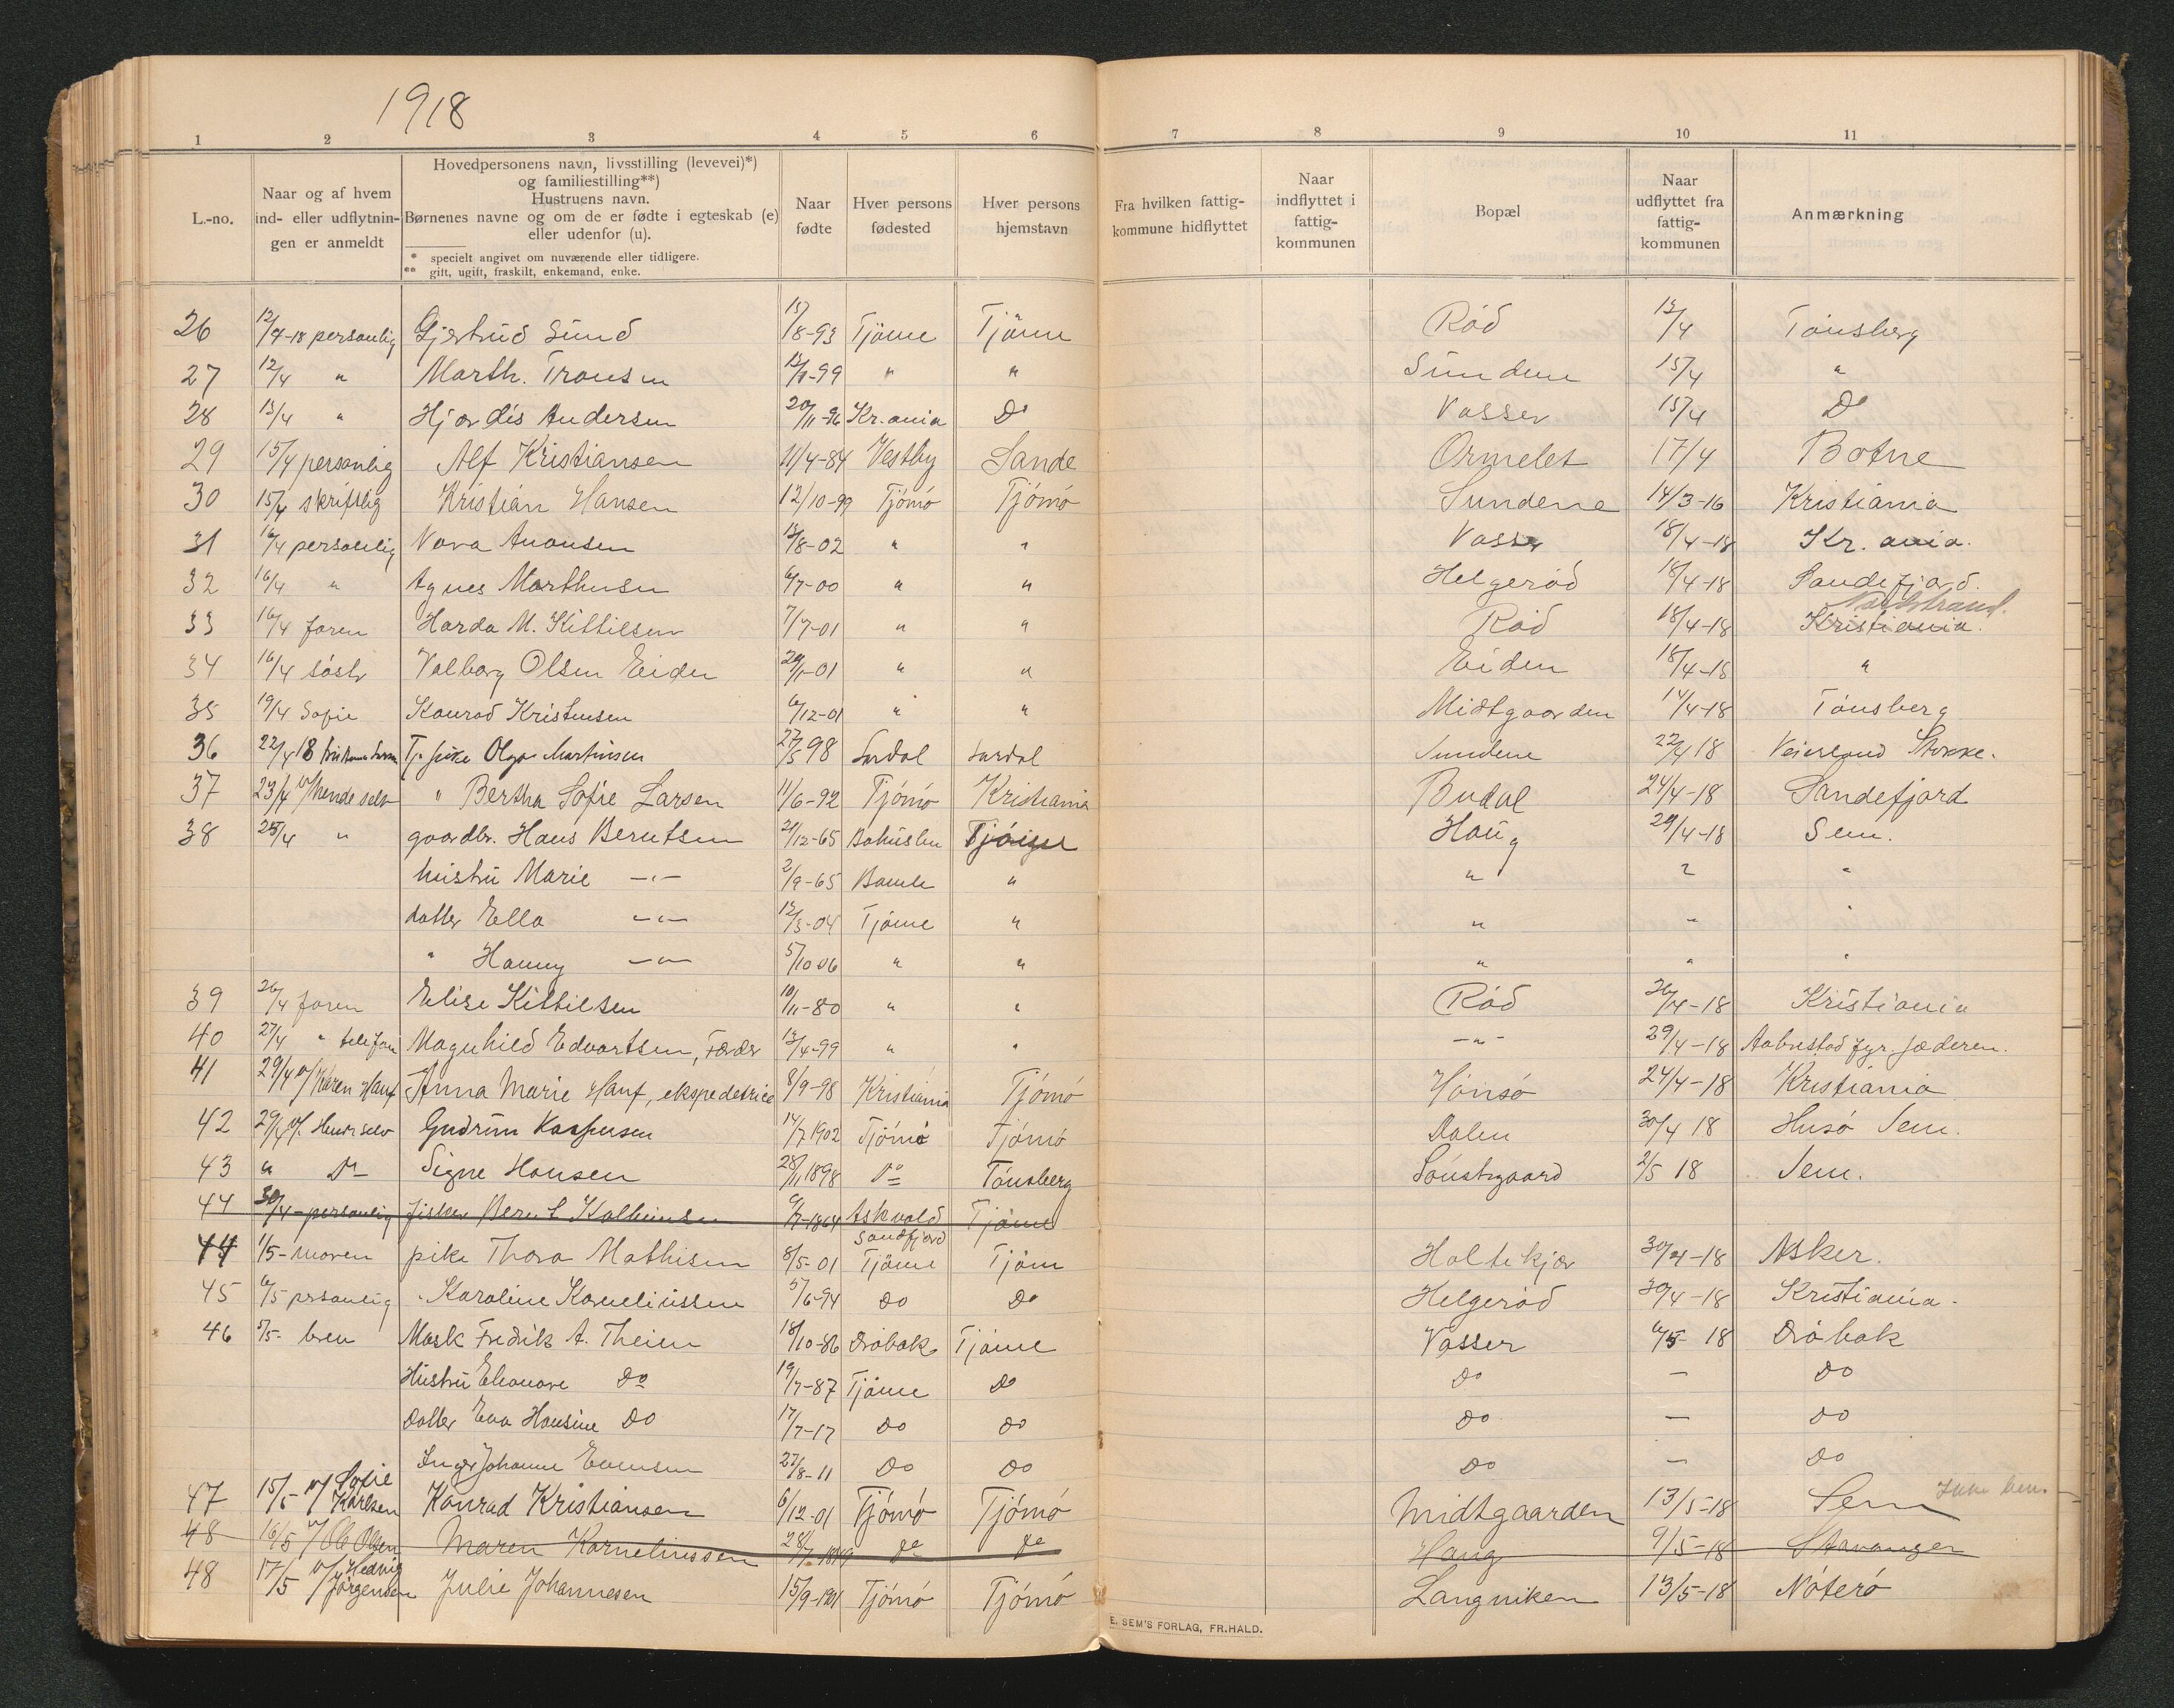 1918
1 2 3 4 5 6 7 8 9 10 11
L.-no.
Naar og af hvem
ind- eller udflytnin-
gen er anmeldt
Hovedpersonens navn, livsstilling (levevei)*)
og familiestilling**)
Hustruens navn.
Børnenes navne og om de er fødte i egteskab (e)
eller udenfor (u).
* specielt angivet om nuværende eller tidligere.
** gift, ugift, fraskilt, enkemand, enke.
Naar
fødte
Hver persons
fødested
Hver persons
hjemstavn
Fra hvilken fattig-
kommune hidflyttet
Naar
indflyttet i
fattig-
kommunen
Bopæl
Naar
udflyttet fra
fattig-
kommunen
Anmærkning
26 12/4-18 personlig Gjertrud Sund 15/8-93 Tjöme Tjöme Röd 12/4 Tönsberg
27 12/4 " Marth. 99 " " Sundene 15/4 "
28 13/4 " Hjordis Andersen 20/11-96 Kr.ania Do Vasser 15/4 Do
29 15/4 personlig Alf Kristiansen 11/4-84 Vestby Sande Ormelet 17/4 Botne
30 15/4 skriftlig Kristian Hansen 12/10-99 Tjömö Tjömö Sundene 14/3-16 Kristiania
31 16/4 personlig Nora 8-02 " " Vasser 18/4-18 Kr.ania.
32 16/4 " Agnes Marthinsen 6/7-00 " " Helgeröd 18/4-18 Sandefjord.
Nordstrand.
33 16/4 faren Harda M. Kittilsen 7/7-01 " " Röd 18/4-18 Kristiania.
34 16/4 söstr Valborg Olsen Eiden 01 " " Eiden 18/4-18 "
35 19/4 Sofie Konrad Kristensen 6/12-01 " " Midtgaarden 14/4-18 Tönsberg
36 22/4 18 Tj. pike Olga Martinsen 27/5 98 Lardal Lardal Sundene 22/4 18 Veierland Stokke.
37 23/4 v/hende selv " Bertha Sofie Larsen 11/6-92 Tjömö Kristiania Budal 24/4-18 Sandefjord
38 25/4 " gaardbr. Hans Berntsen 21/12-65 Bohuslen Tjöme Haug 29/4-18 Sem.
hustru Marie -"- 2/9-65 Bamle " " "
datter Ella -"- 12/3-04 Tjöme " " " "
" Hanny -"- 5/10 06 " " " " "
39 26/4 faren Elise Kittilsen 10/11-80 " " Röd 26/4-18 Kristiania
40 27/4 " telefon Magnhild Edvartsen, Færder 13/4-99 " " -"- 29/4-18 fyr. Jæderen.
41 29/4 v/Karen Hauf Anna Marie Hauf, ekspedetrice 8/9-98 Kristiania Tjömö Hönsö 24/4-18 Kristiania
42 29/4 v/. Hende selv Gudrun Kaspersen 14/7 1902 Tjömö Tjömö Dalen 30/4 18 Husö Sem.
43 " Do Signe Hansen 28/11 1898 Do Tönsberg 2/5 18 Sem.
44 30/4-personlig fisker Bernt 1864 Askvold Tjöme
Sandfjord
44 1/5-moren pike Thora Mathisen 8/5-01 Tjöme Tjöm Holtekjær 30/4-18 Asker.
45 6/5 prsonlig " Karoline Korneliussen 5/6-94 Do Do Helgeröd 30/4-18 Kristiania.
46 6/5- bren Mask Fredrik A. Theien 18/10-86 Dröbak Tjöme Vasser 6/5-18 Dröbak
Hustru Eleonore Do 19/7-87 Tjöme Do Do — Do
Datter Eva Hansine Do 17/7-17 Do Do Do — Do
Inger Johanne Evensen 27/8-11 Do Do Do — Do
47 15/5- v/ Sofie Karlsen Konrad Kristiansen 6/12-01 Tjömö Tjömö Midtgaarden 13/5-18 Sem
48 16/5 v/Ole Olsen Maren Korneliussen Do Do Haug 9/5-18 Stavanger
48 17/5 v/Hedvig Jørgensen Julie Johannesen 15/9-1901 Tjömö Tjömö Langviken 13/5-18 Nöterö
E. SEM'S FORLAG, FR.HALD.